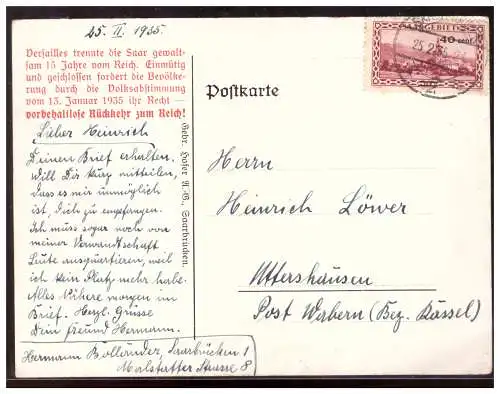 25. II. 1935.
Versailles trennte die Saar gewalt-
sam 15 Jahre vom Reich. Einmütig
und geschlossen fordert die Bevölke-
rung durch die Volksabstimmung
vom 13. Januar 1935 ihr Recht —
vorbehaltlose Rückkehr zum Reich!
Lieber Heinrich
Deinen Brief erhalten.
Will Dir kurz mitteilen,
dass es mir unmöglich
ist, Dich zu empfangen.
Ich muss sogar noch von
meiner Verwandtschaft
Leute ausquartieren, weil
ich kein Platz mehr habe.
Alles Nähere morgen im
Brief. Herzl. Grüsse
Dein Freund Hermann.
Hermann Bolländer, Saarbrücken 1
Malstatter Strasse 8
Gebr. Hofer A.-G., Saarbrücken.
Postkarte
SAARGEBIET
40 cent.
25.2.35
Herrn
Heinrich Löwer
Uttershausen
Post Wabern (Bez. Kassel)